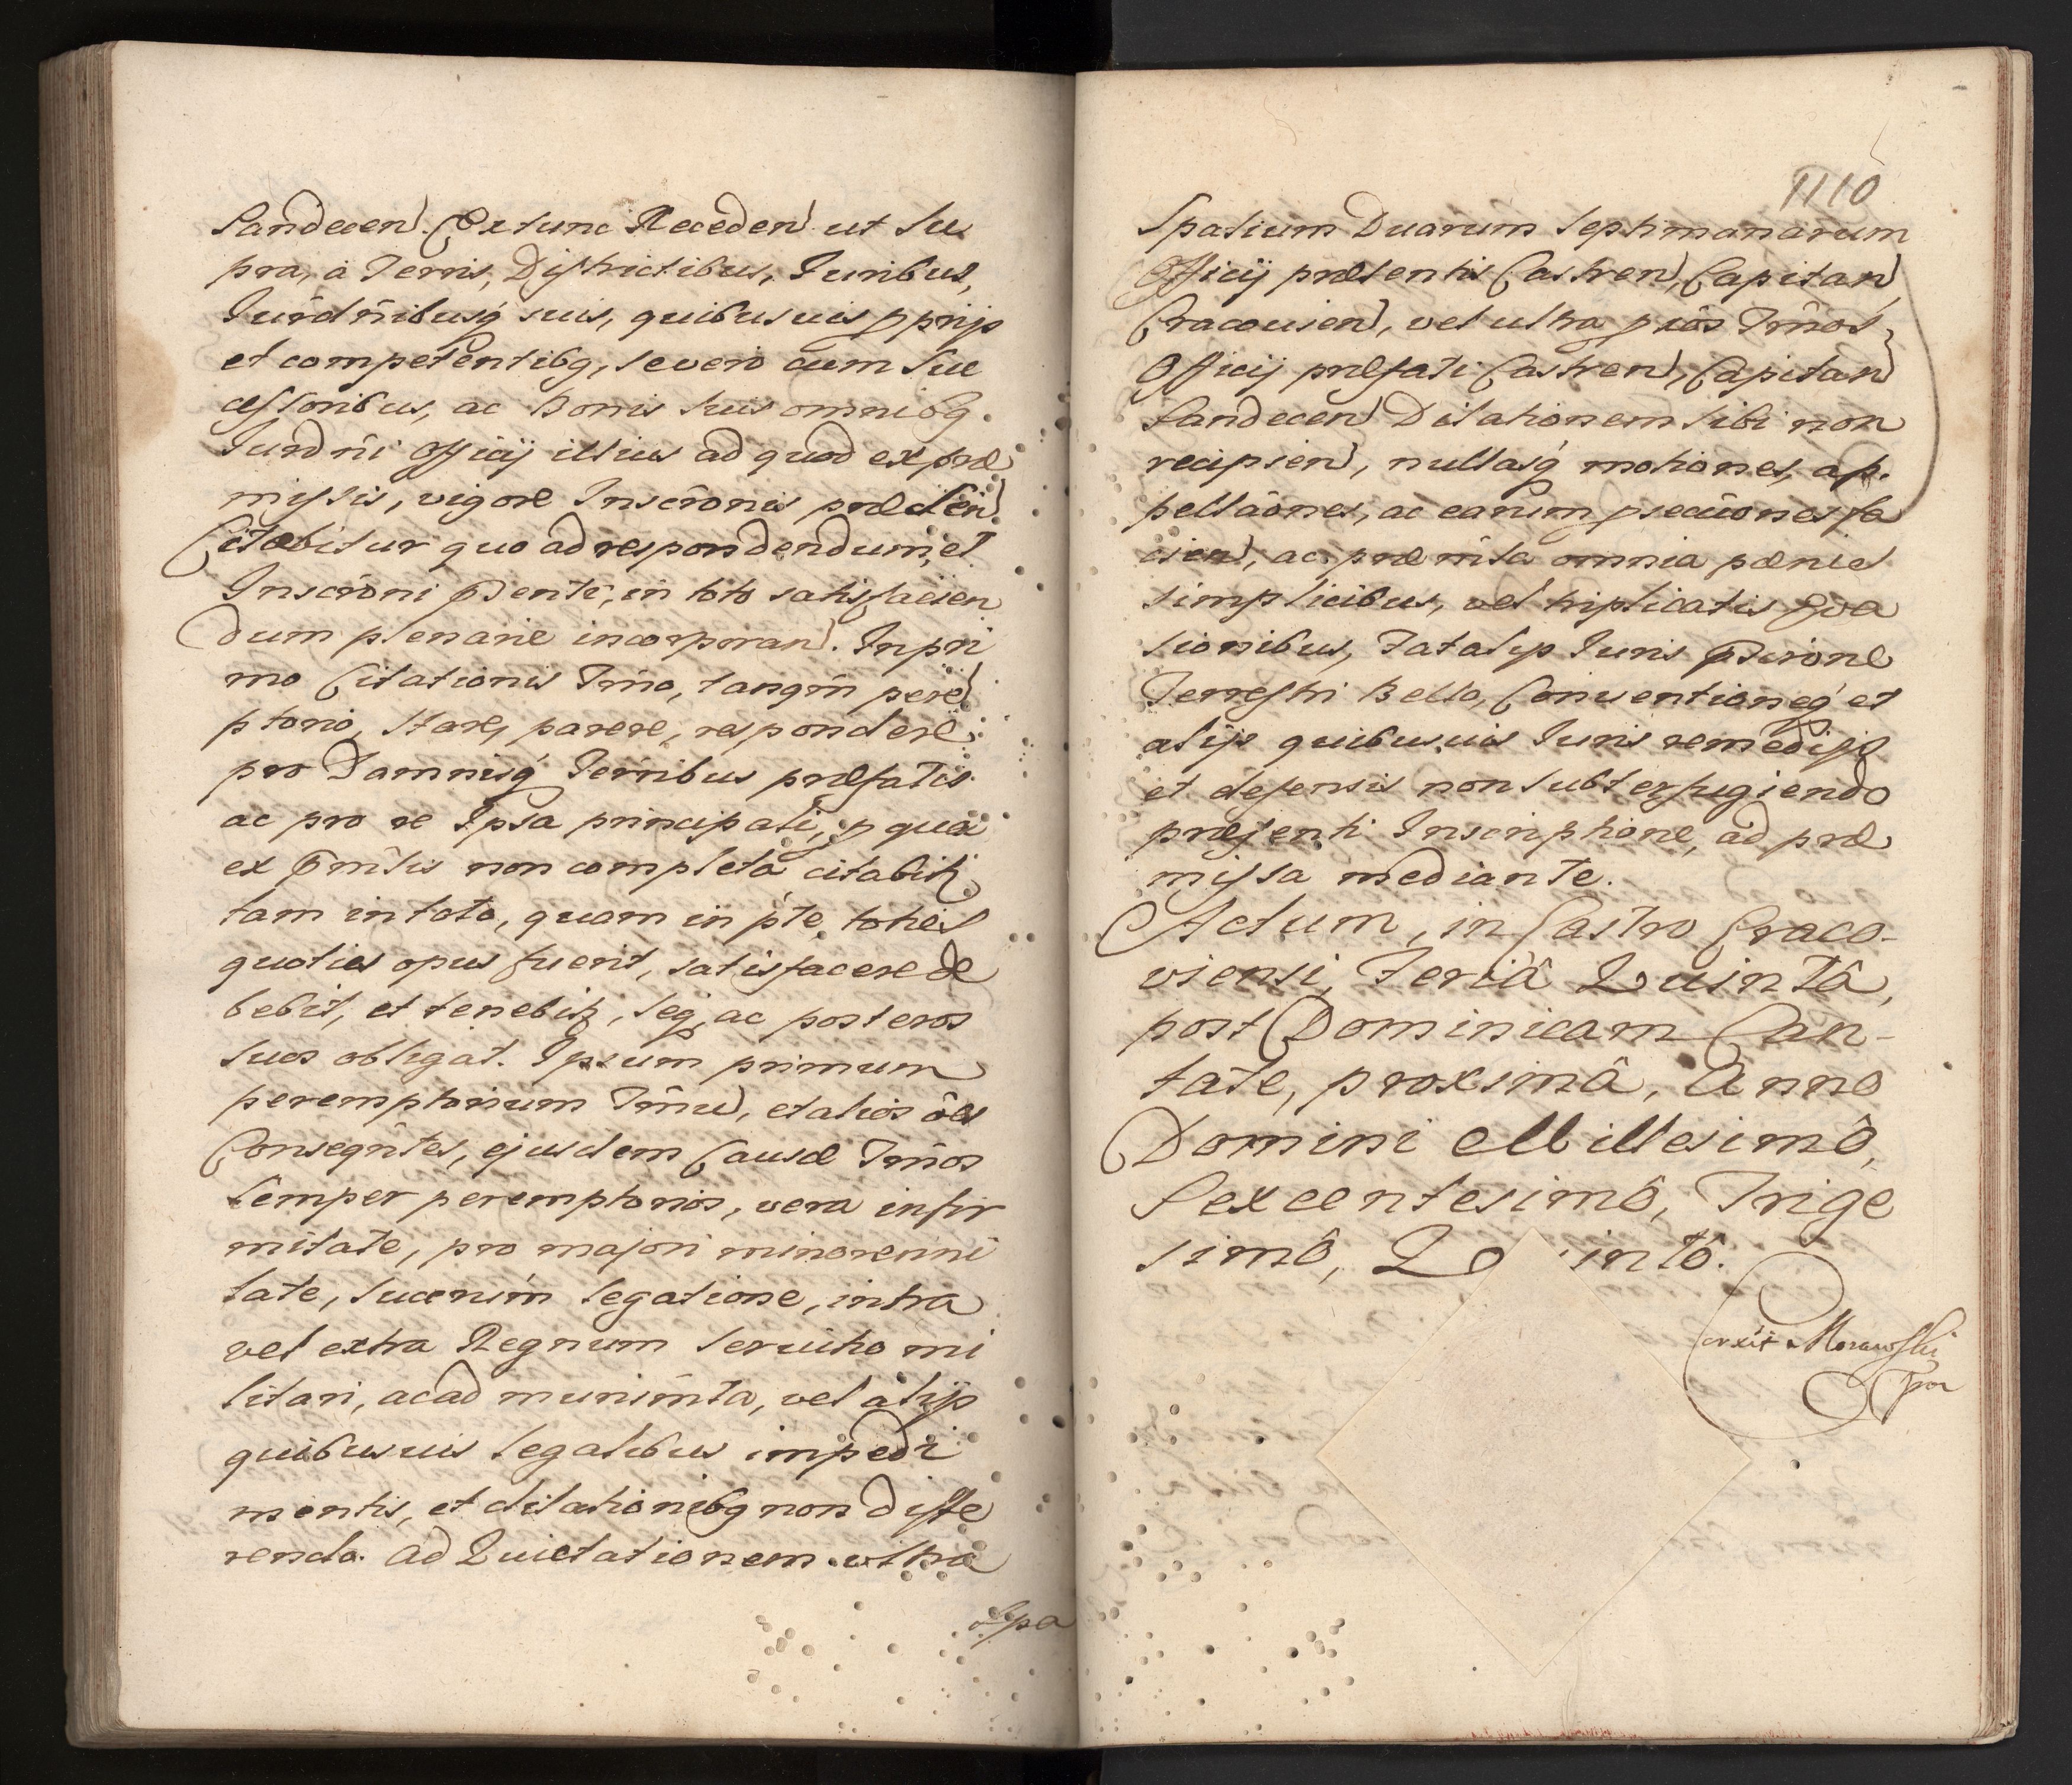 Sandecen. Extunc Receden ut Su
pra, à Terris, Districtibus, Juribus,
Jurdnibusq suis, quibusuis pprijs
et competentibg, se vero cum Suc
cessoribus, ac Bonis suis omnibg.
Jurdni Officij illius ad quod ex præ
missis, vigore Inscrônis præsen
Citabitur quo ad respondendum, et
Inscrôni pñti, in toto satisfacien
dum plenariè incorporan. In pri
mo Citationis Tmîno, tanqm pere
ptorio, Stare, parere, respondere
pro Damnisq Terribus præfatis
ac pro re Ipsa principali, p qua
ex pmîsis non completa citabitr
tam in toto, quam in pte, toties
quoties opus fuerit, satisfacere de
bebit, et tenebitr, seq ac posteros
suos obligat. Ipsum primum
peremptorium Tmînu, et alios ôes
Conseqntes, ejusdem Causæ Tmînos
semper peremptorios, vera infir
mitate, pro majori minorenni
tate, sucenim legatione, intra
vel extra Regnum servitio mi
litari, ac ad munimta, vel alijs
quibusuis legalibus impedi
mentis, et dilationibg non diffe
rendo. Ad Quietationem ultra
Spa
1110
Spatium Duarum Septimanarum
Officij præsentis Castren, Capitan
Cracovien, vel ultra priôs Tmînos
Officij præfati Castren, Capitan
Sandecen Dilationem sibi non
recipien, nullasq motiones, ap.
pellaônes, ac earum psecuônes fa
cien, ac præmta omnia pænis
simplicibus, vel triplicatis Eva
sionibus, Fatalip Juris pscrione
Terrestri Bello, Conventioneq et
alijs quibusuis Juris remedijs
et defensis non subterfugiendo
præsenti Inscriptione, ad præ
missa mediante.
Actum, in Castro Craco-
viensi, Feriâ Quintâ,
post Dominicam Can-
tate, proximâ, Anno
Domini Millesimô,
Sexcentesimô, Trige
simô, Quintô.
Corxit Morawski
mpr